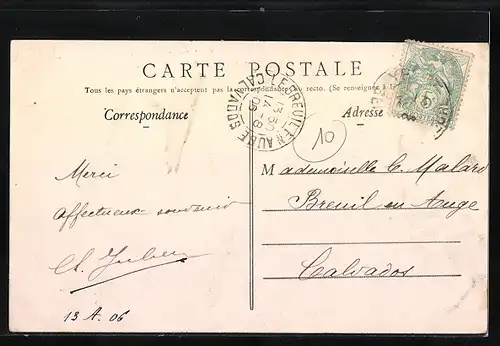 CARTE POSTALE
Tous les pays étrangers n'acceptent pas la correspondance au recto. (Se renseigner à la
Correspondance
Adresse
LE BREUIL EN AUGE CALVADOS
13 30
14 - 8
06
10
Merci
affectueux souvenir
13 A. 06
Mademoiselle C. Malard
Breuil en Auge
Calvados